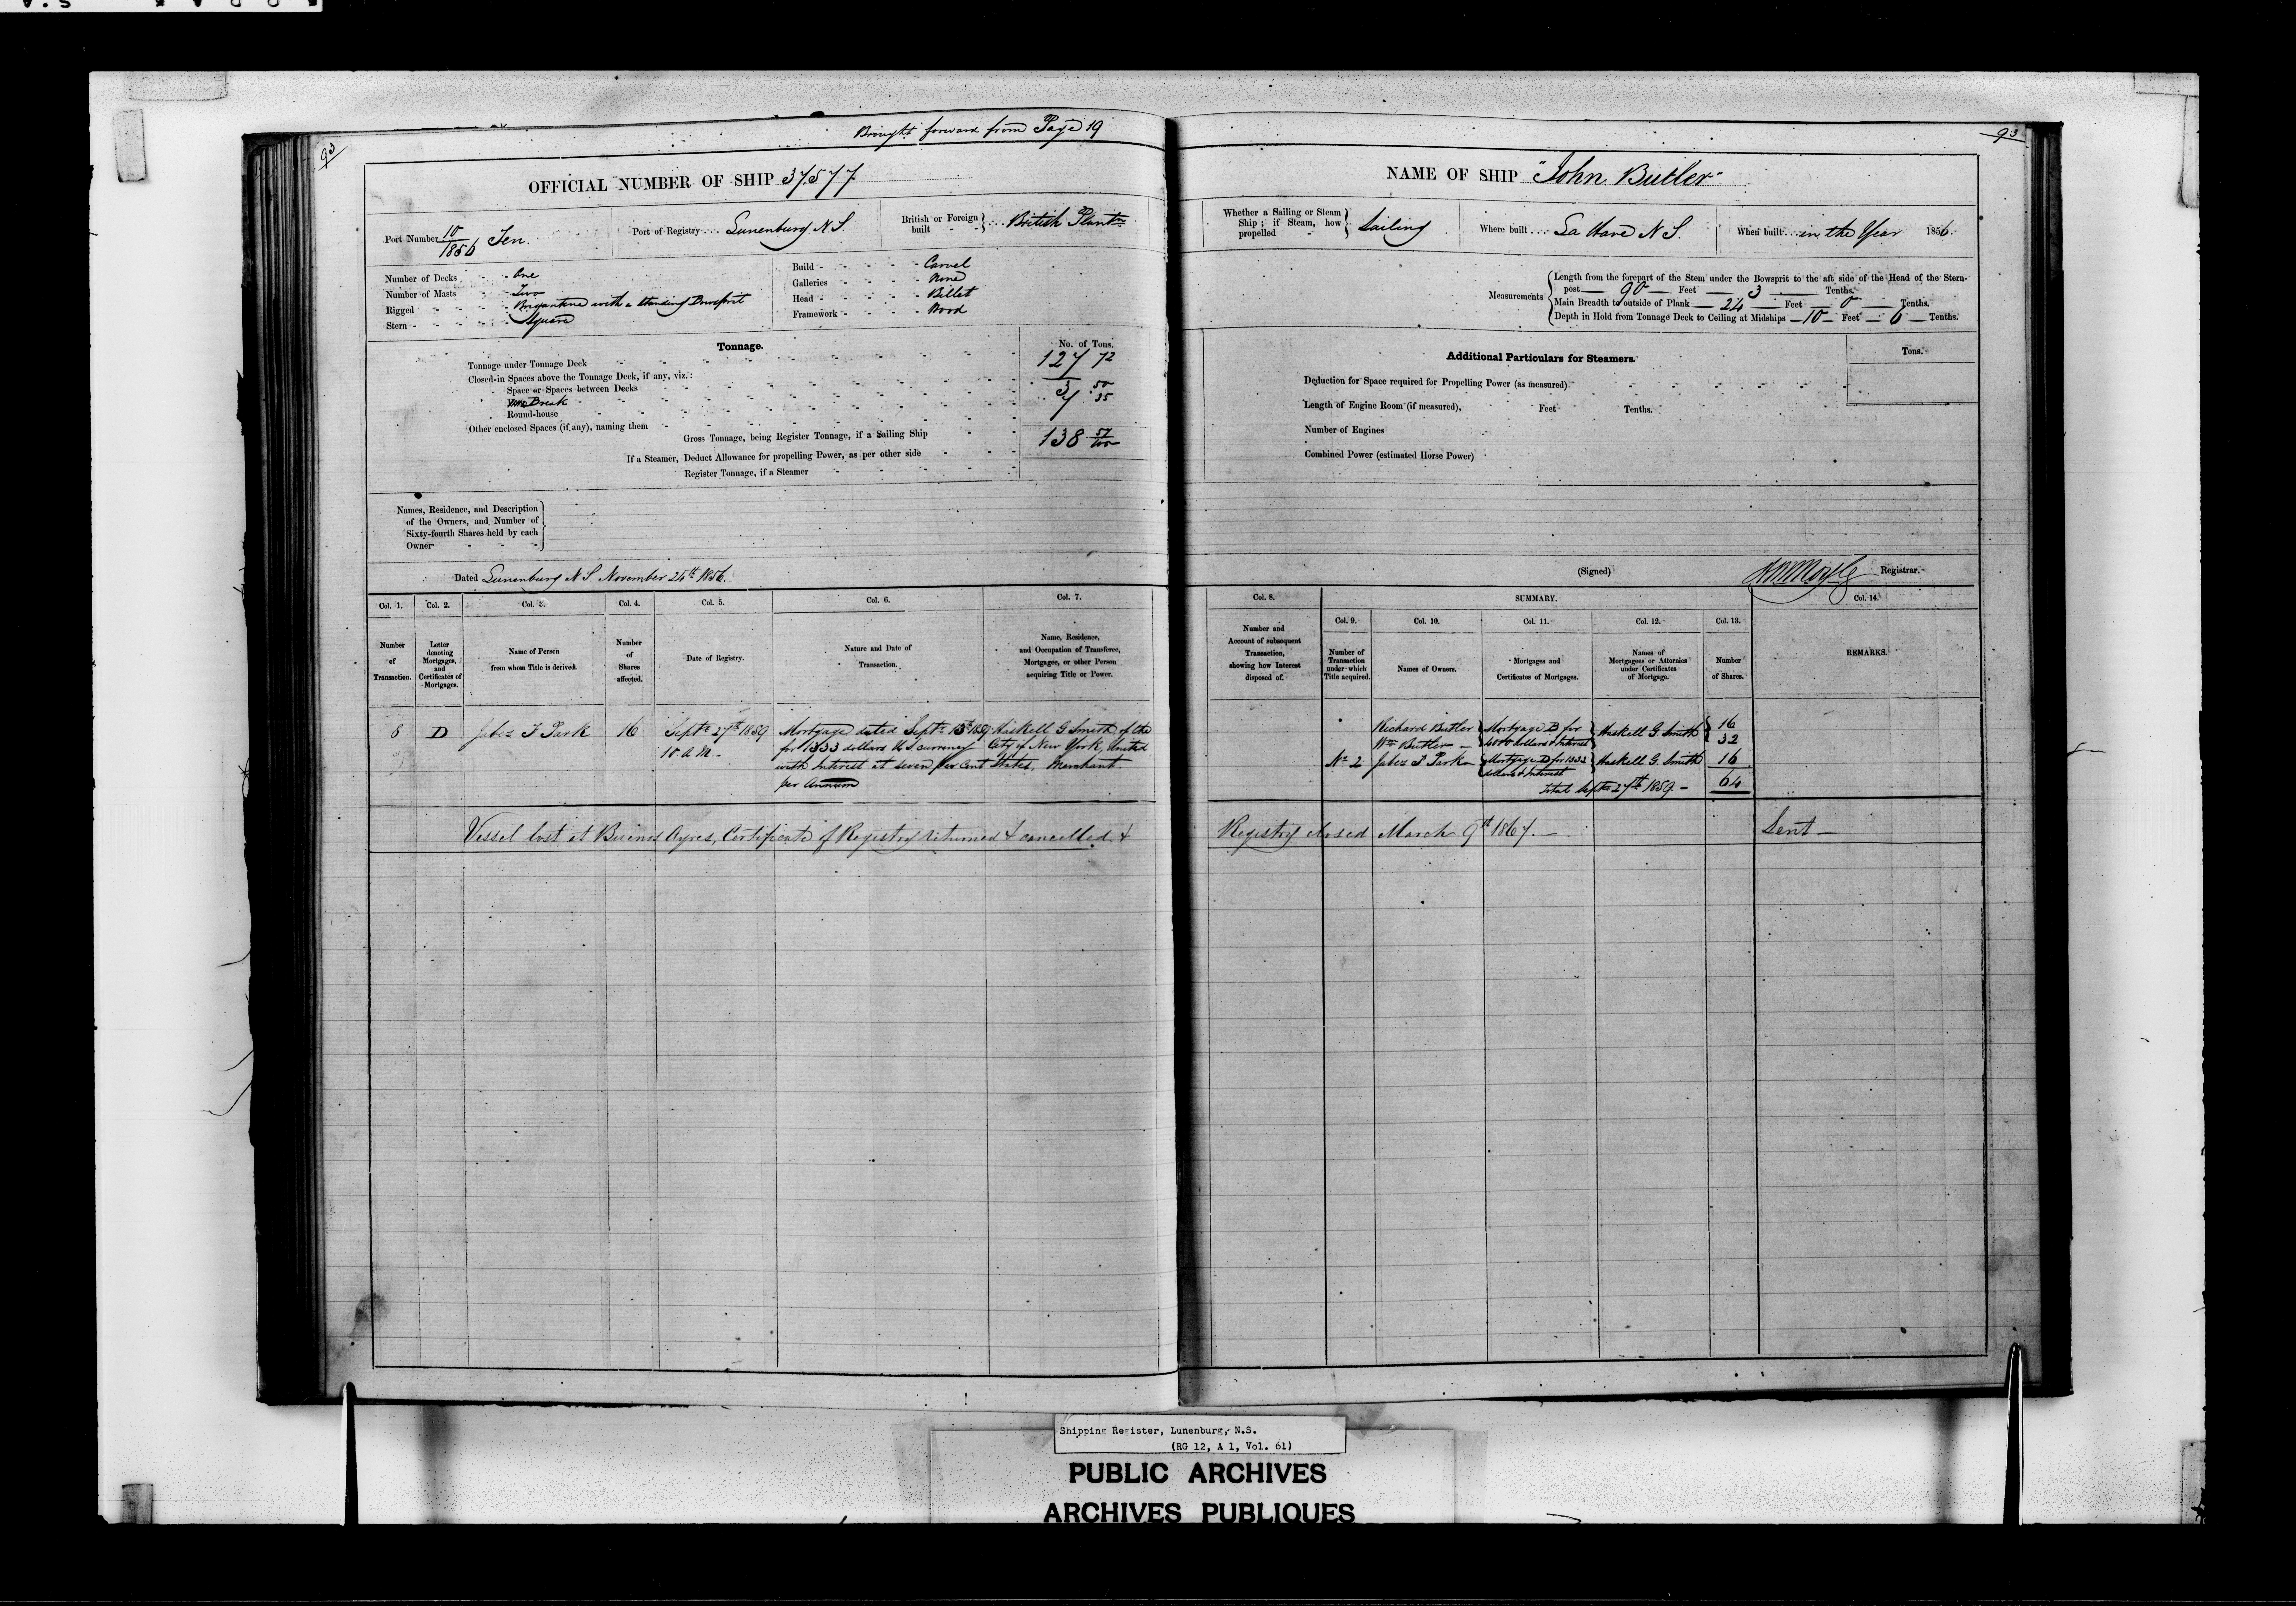 Brought forward from Page 19
93
93
OFFICIAL NUMBER OF SHIP 37577
NAME OF SHIP "John Butler"
Port Number 10/1856 Ten.
Port of Registry Lunenburg N.S.
British or Foreign built British Plantn
Whether a Sailing or Steam Ship; if Steam, how propelled Sailing
Where built La Have N S.
When built in the Year 1856.
Number of Decks One
Number of Masts Two
Rigged Brigantine with a standing Bowsprit
Stern Square
Build Carvel
Galleries None
Head Billet
Framework Wood
Measurements
Length from the forepart of the Stem under the Bowsprit to the aft side of the Head of the Stern-
post 90 Feet 3 Tenths.
Main Breadth to outside of Plank 24 Feet 0 Tenths.
Depth in Hold from Tonnage Deck to Ceiling at Midships 10 Feet 6 Tenths.
Tonnage.
No. of Tons.
Tonnage under Tonnage Deck 127 72
Closed-in Spaces above the Tonnage Deck, if any, viz.:
Space or Spaces between Decks
Break 3 50
Round-house 7 35
Other enclosed Spaces (if any), naming them
Gross Tonnage, being Register Tonnage, if a Sailing Ship 138 57/100
If a Steamer, Deduct Allowance for propelling Power, as per other side
Register Tonnage, if a Steamer
Additional Particulars for Steamers.
Tons.
Deduction for Space required for Propelling Power (as measured)
Length of Engine Room (if measured), Feet Tenths.
Number of Engines
Combined Power (estimated Horse Power)
Names, Residence, and Description
of the Owners, and Number of
Sixty-fourth Shares held by each
Owner
Dated Lunenburg N S. November 24th 1856.
(Signed) Registrar.
Col. 1. Col. 2. Col. 3. Col. 4. Col. 5. Col. 6. Col. 7.
Col. 8. SUMMARY. Col. 14.
Col. 9. Col. 10. Col. 11. Col. 12. Col. 13.
Number of Transaction.
Letter denoting Mortgages, and Certificates of Mortgages.
Name of Person from whom Title is derived.
Number of Shares affected.
Date of Registry.
Nature and Date of Transaction.
Name, Residence, and Occupation of Transferee, Mortgagee, or other Person acquiring Title or Power.
Number and Account of subsequent Transaction, showing how Interest disposed of.
Number of Transaction under which Title acquired.
Names of Owners.
Mortgages and Certificates of Mortgages.
Names of Mortgagees or Attornies under Certificates of Mortgage.
Number of Shares.
REMARKS.
8 D Jabez T Park 16 Septr 27th 1859
10 A M.
Mortgage dated Septr 15th 1859
for 1333 dollars U S currency
with Interest at seven per Cent
per Annum
Haskell G Smith of the
City of New York, United
States, Merchant.
Richard Butler Mortgage B for Haskell G Smith 16
Wm Butler 4000 dollars & Interest 32
No 2 Jabez T Park Mortgage D for 1333 Haskell G. Smith 16
dollars & Interest
total Septr 27th 1859. 64
Vessel lost at Buenos Ayres, Certificate of Registry returned & cancelled. &
Registry closed March 9th 1867. Sent
Shipping Register, Lunenburg, N.S.
(RG 12, A 1, Vol. 61)
PUBLIC ARCHIVES
ARCHIVES PUBLIQUES